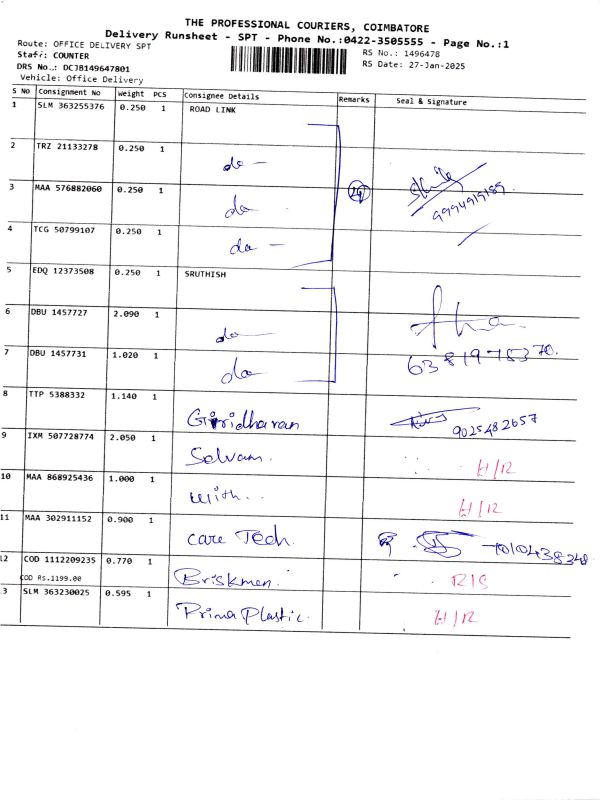 THE PROFESSIONAL COURIERS, COIMBATORE
Delivery Runsheet - SPT - Phone No.:0422-3505555 - Page No.:1
Route: OFFICE DELIVERY SPT
RS No.: 1496478
Staff: COUNTER
RS Date: 27-Jan-2025
DRS No..: DCJB149647801
Vehicle: Office Delivery
S No Consignment No Weight PCS Consignee Details Remarks Seal & Signature
1 SLM 363255376 0.250 1 ROAD LINK
2 TRZ 21133278 0.250 1 do -
3 MAA 576882060 0.250 1 do 9994919189
4 TCG 50799107 0.250 1 do -
5 EDQ 12373508 0.250 1 SRUTHISH
6 DBU 1457727 2.090 1 do
7 DBU 1457731 1.020 1 do 6381975370.
8 TTP 5388332 1.140 1 Giridharan 9025482657
9 IXM 507728774 2.050 1 Selvam. H/12
10 MAA 868925436 1.000 1 With.. H/12
11 MAA 302911152 0.900 1 Care Tech.
12 COD 1112209235 0.770 1 Briskmen. R15
COD Rs.1199.00
3 SLM 363230025 0.595 1 Prima Plastic. H/12